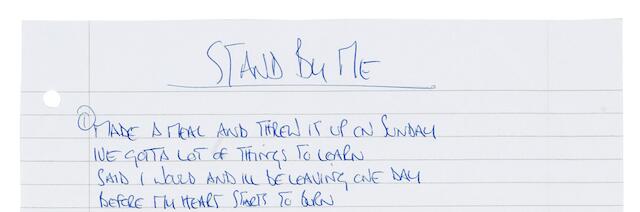 STAND BY ME
① MADE A MEAL AND THREW IT UP ON SUNDAY
IVE GOTTA LOT OF THINGS TO LEARN
SAID I WOULD AND ILL BE LEAVING ONE DAY
BEFORE MY HEART STARTS TO BURN